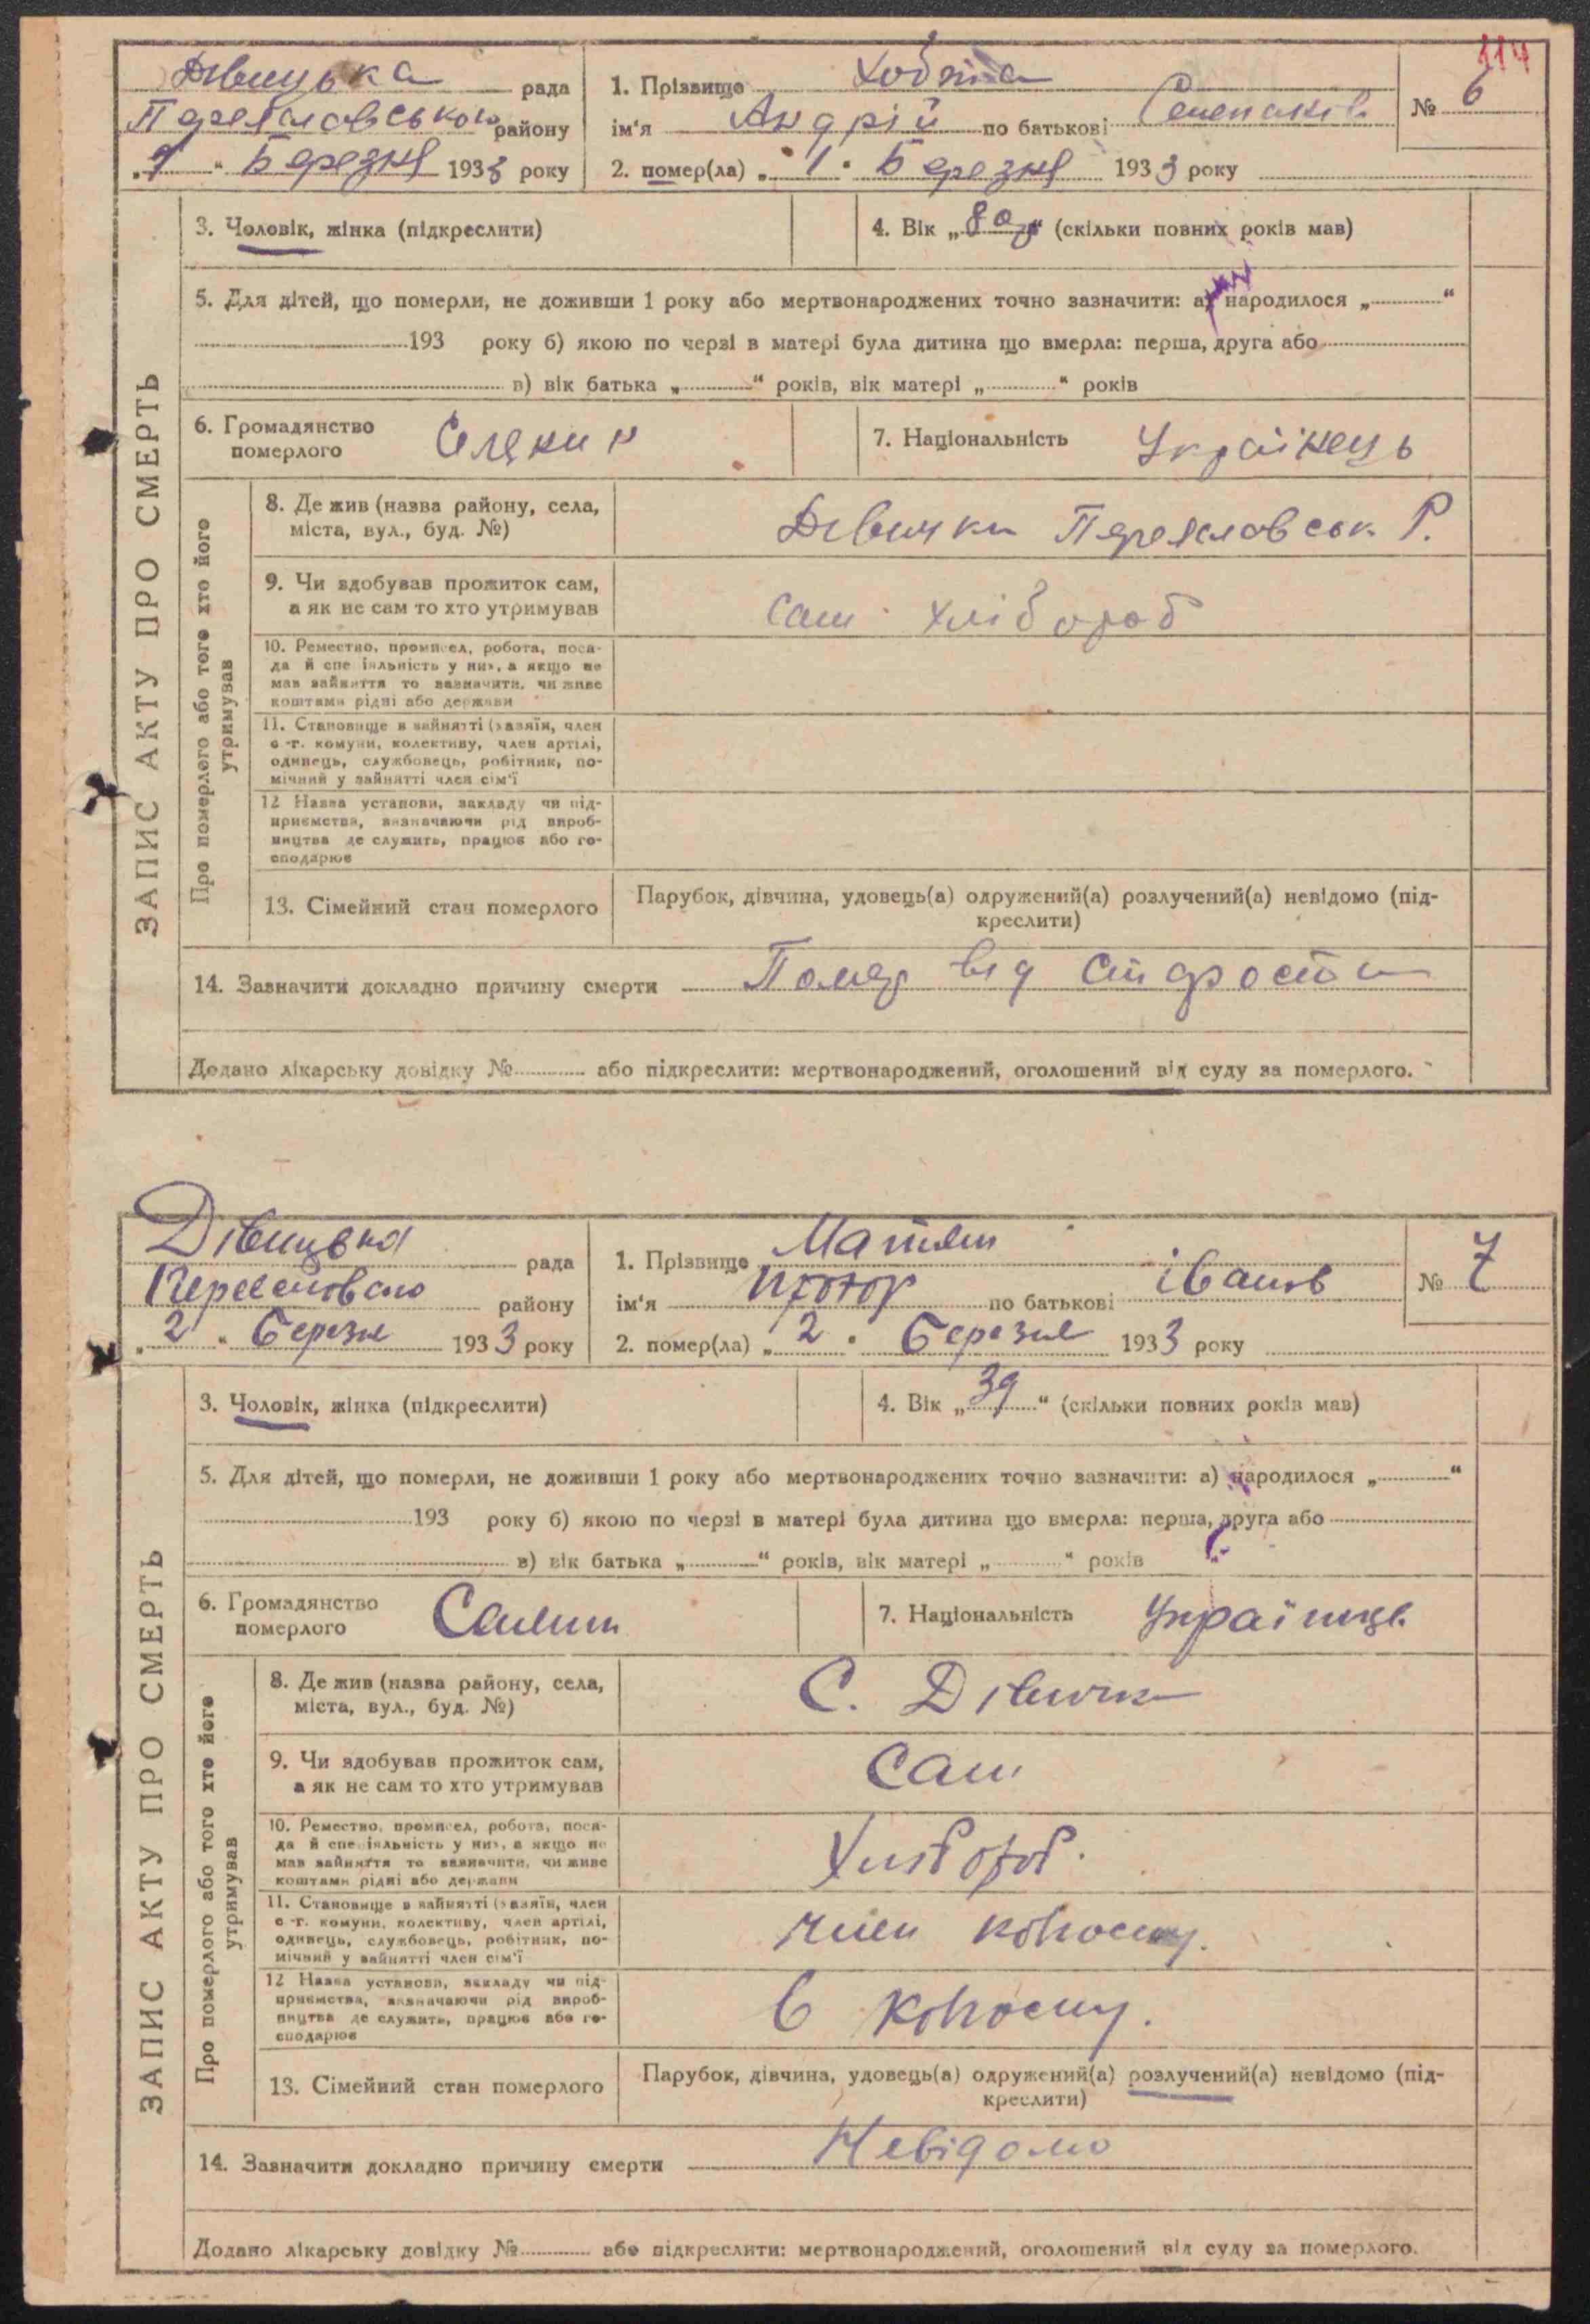 114
Дівицька рада
Переяславського району
„1“ Березня 1933 року
1. Прізвище
ім'я Андрій по батькові
№ 6
2. помер(ла) „1“ Березня 1933 року
ЗАПИС АКТУ ПРО СМЕРТЬ
3. Чоловік, жінка (підкреслити)
4. Вік „80“ (скільки повних років мав)
5. Для дітей, що померли, не доживши 1 року або мертвонароджених точно зазначити: а) народилося „ “
193 року б) якою по черзі в матері була дитина що вмерла: перша, друга або
в) вік батька „ “ років, вік матері „ “ років
6. Громадянство померлого Селянин
7. Національність Українець
Про померлого або того хто його утримував
8. Де жив (назва району, села,
міста, вул., буд. №)
Дівички Переяславськ. Р.
9. Чи здобував прожиток сам,
а як не сам то хто утримував
Сам хлібороб
10. Ремество, промисел, робота, поса-
да й спеціяльність у них, а якщо не
мав зайняття то зазначити, чи живе
коштами рідні або держави
11. Становище в зайнятті (хазяїн, член
с.-г. комуни, колективу, член артілі,
одинець, службовець, робітник, по-
мічний у зайнятті член сім'ї
12 Назва установи, закладу чи під-
приємства, визначаючи рід вироб-
ництва де служить, працює або го-
сподарює
13. Сімейний стан померлого
Парубок, дівчина, удовець(а) одружений(а) розлучений(а) невідомо (під-
креслити)
14. Зазначити докладно причину смерти Помер від старости
Додано лікарську довідку № або підкреслити: мертвонароджений, оголошений від суду за померлого.
Дівицька рада
району
„2“ Березня 1933 року
1. Прізвище Матяш
ім'я по батькові Іванов
№ 7
2. помер(ла) „2“ Березня 1933 року
ЗАПИС АКТУ ПРО СМЕРТЬ
3. Чоловік, жінка (підкреслити)
4. Вік „39“ (скільки повних років мав)
5. Для дітей, що померли, не доживши 1 року або мертвонароджених точно зазначити: а) народилося „ “
193 року б) якою по черзі в матері була дитина що вмерла: перша, друга або
в) вік батька „ “ років, вік матері „ “ років
6. Громадянство померлого Селянин
7. Національність Українець
Про померлого або того хто його утримував
8. Де жив (назва району, села,
міста, вул., буд. №)
С. Дівички
9. Чи здобував прожиток сам,
а як не сам то хто утримував
Сам
10. Ремество, промисел, робота, поса-
да й спеціяльність у них, а якщо не
мав зайняття то зазначити, чи живе
коштами рідні або держави
Хлібороб.
11. Становище в зайнятті (хазяїн, член
с.-г. комуни, колективу, член артілі,
одинець, службовець, робітник, по-
мічний у зайнятті член сім'ї
член колгоспу.
12 Назва установи, закладу чи під-
приємства, визначаючи рід вироб-
ництва де служить, працює або го-
сподарює
в колгоспу.
13. Сімейний стан померлого
Парубок, дівчина, удовець(а) одружений(а) розлучений(а) невідомо (під-
креслити)
14. Зазначити докладно причину смерти Невідомо
Додано лікарську довідку № або підкреслити: мертвонароджений, оголошений від суду за померлого.